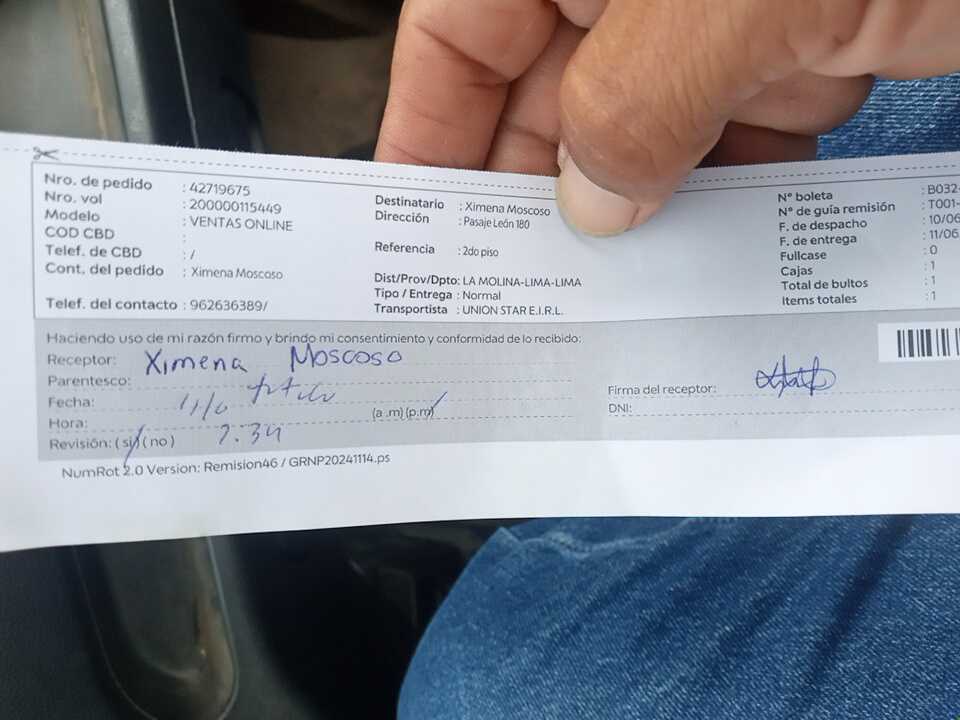 Nro. de pedido : 42719675
Nro. vol : 200000115449
Modelo : VENTAS ONLINE
COD CBD :
Telef. de CBD : /
Cont. del pedido : Ximena Moscoso
Telef. del contacto : 962636389/
Destinatario : Ximena Moscoso
Dirección : Pasaje León 180
Referencia : 2do piso
Dist/Prov/Dpto: LA MOLINA-LIMA-LIMA
Tipo / Entrega : Normal
Transportista : UNION STAR E.I.R.L.
N° boleta : B032-
N° de guía remisión : T001-
F. de despacho : 10/06
F. de entrega : 11/06
Fullcase : 0
Cajas : 1
Total de bultos : 1
Items totales : 1
Haciendo uso de mi razón firmo y brindo mi consentimiento y conformidad de lo recibido:
Receptor: Ximena Moscoso
Parentesco:
Fecha:
Hora: (a .m) (p.m)
Revisión: ( si ) ( no )
Firma del receptor:
DNI:
NumRot 2.0 Version: Remision46 / GRNP20241114.ps